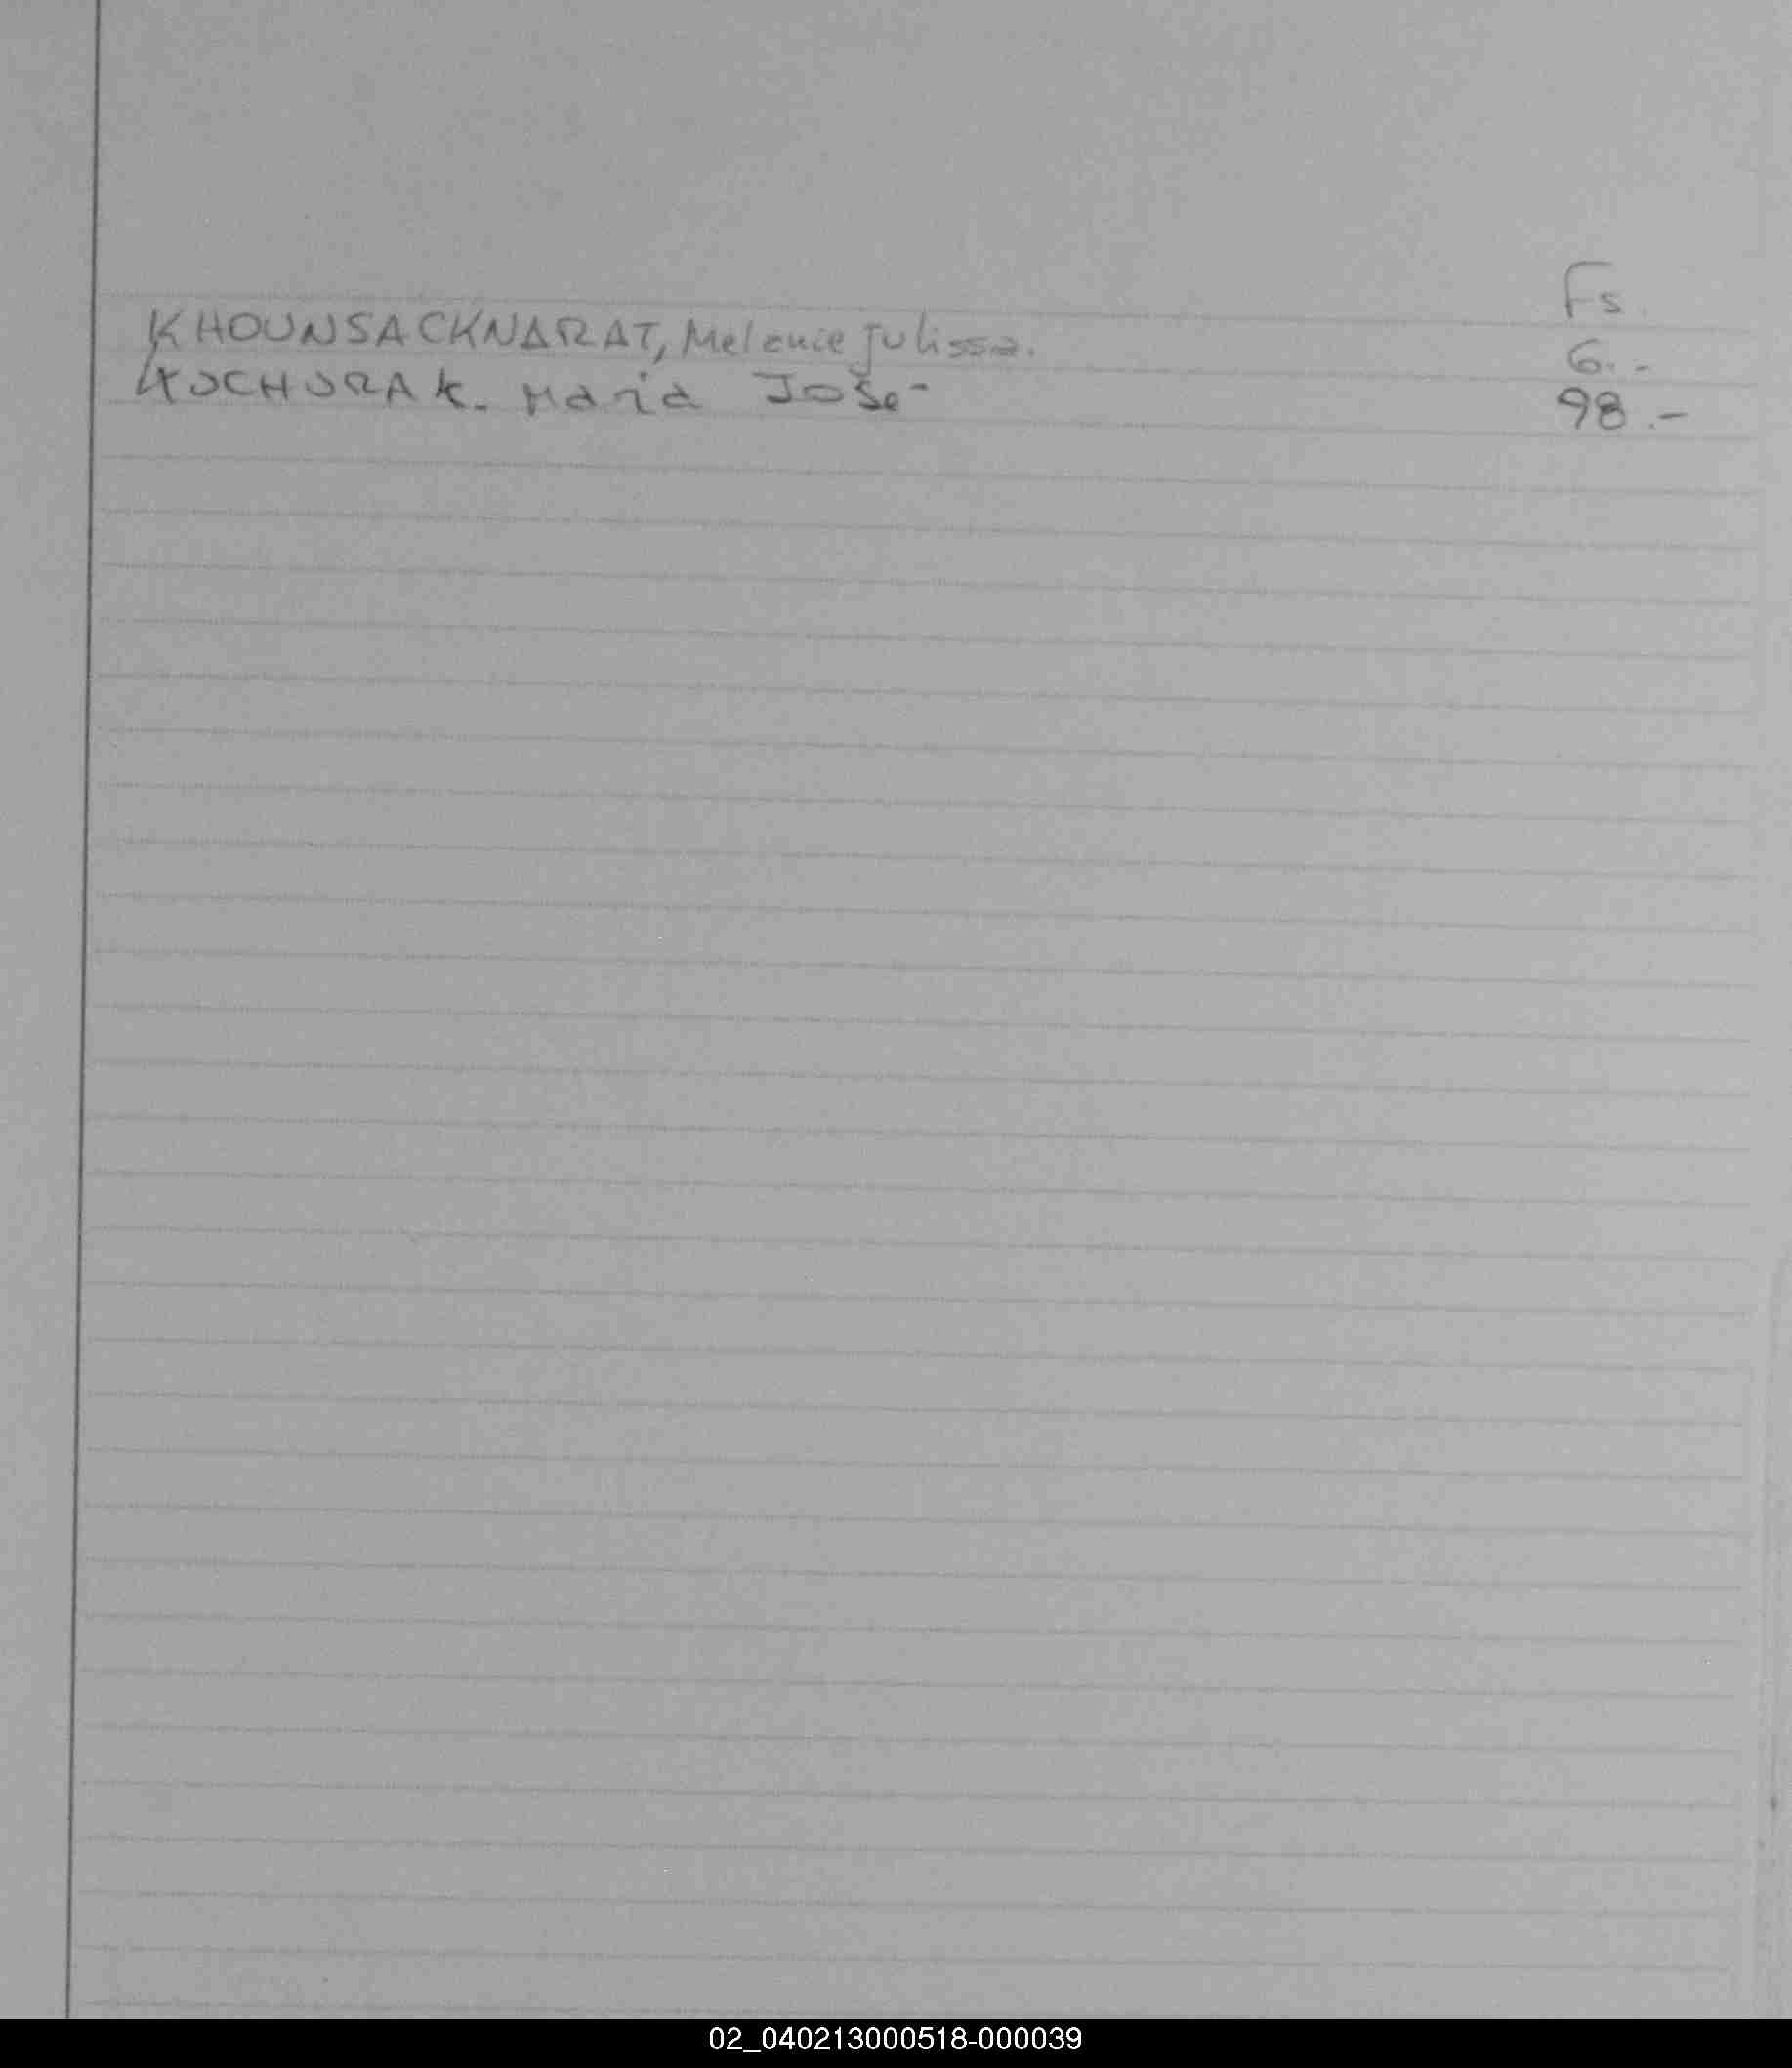 Fs.
KHOUNSACKNARAT, Melanie Julissa. 6.-
KUCHURAK. Maria Jose 98.-
02_040213000518-000039